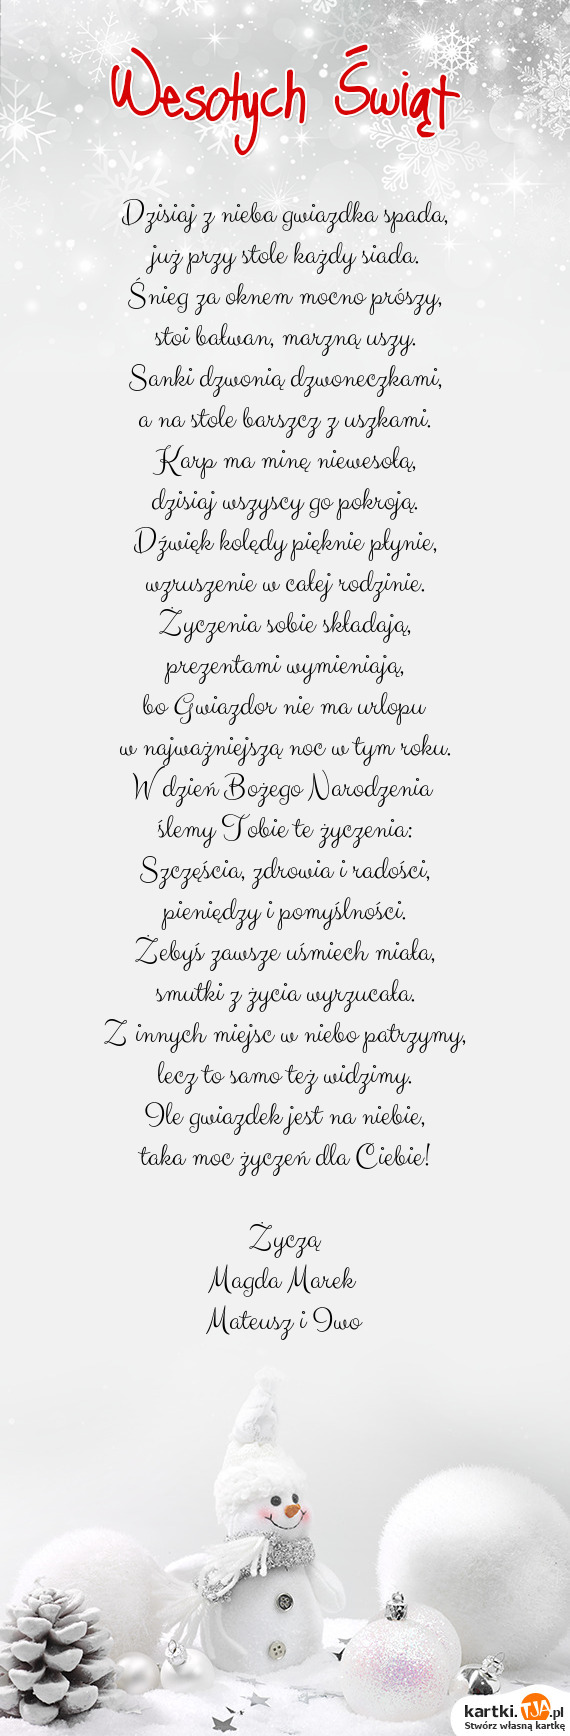 Wesołych Świąt
Dzisiaj z nieba gwiazdka spada,
już przy stole każdy siada.
Śnieg za oknem mocno prószy,
stoi bałwan, marzną uszy.
Sanki dzwonią dzwoneczkami,
a na stole barszcz z uszkami.
Karp ma minę niewesołą,
dzisiaj wszyscy go pokroją.
Dźwięk kolędy pięknie płynie,
wzruszenie w całej rodzinie.
Życzenia sobie składają,
prezentami wymieniają,
bo Gwiazdor nie ma urlopu
w najważniejszą noc w tym roku.
W dzień Bożego Narodzenia
ślemy Tobie te życzenia:
Szczęścia, zdrowia i radości,
pieniędzy i pomyślności.
Żebyś zawsze uśmiech miała,
smutki z życia wyrzucała.
Z innych miejsc w niebo patrzymy,
lecz to samo też widzimy.
Ile gwiazdek jest na niebie,
taka moc życzeń dla Ciebie!
Życzą
Magda Marek
Mateusz i Iwo
kartki.TJA.pl
Stwórz własną kartkę